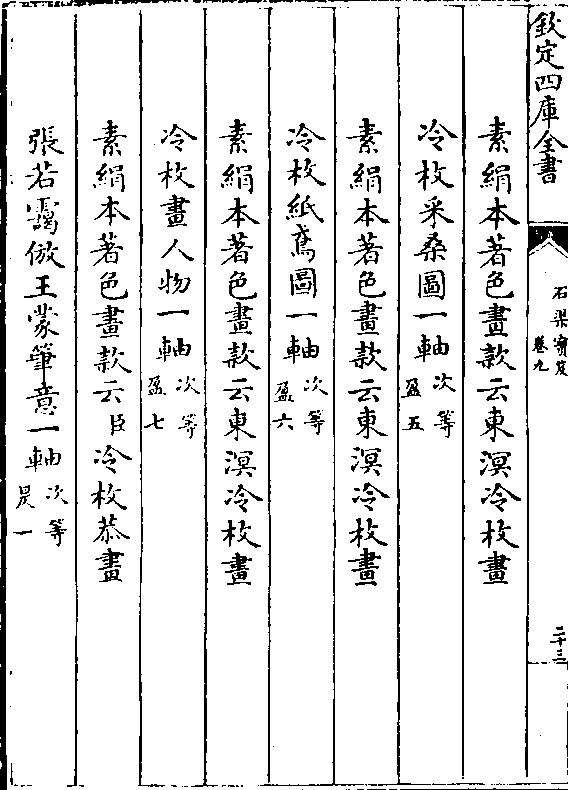 欽定四庫全書
石渠寶笈
卷九
二十三
素絹本著色畫款云東溟冷枚畫
冷枚采桑圖一軸次等盈五
素絹本著色畫款云東溟冷枚畫
冷枚紙鳶圖一軸次等盈六
素絹本著色畫款云東溟冷枚畫
冷枚畫人物一軸次等盈七
素絹本著色畫款云臣冷枚恭畫
張若靄倣王蒙筆意一軸次等昃一